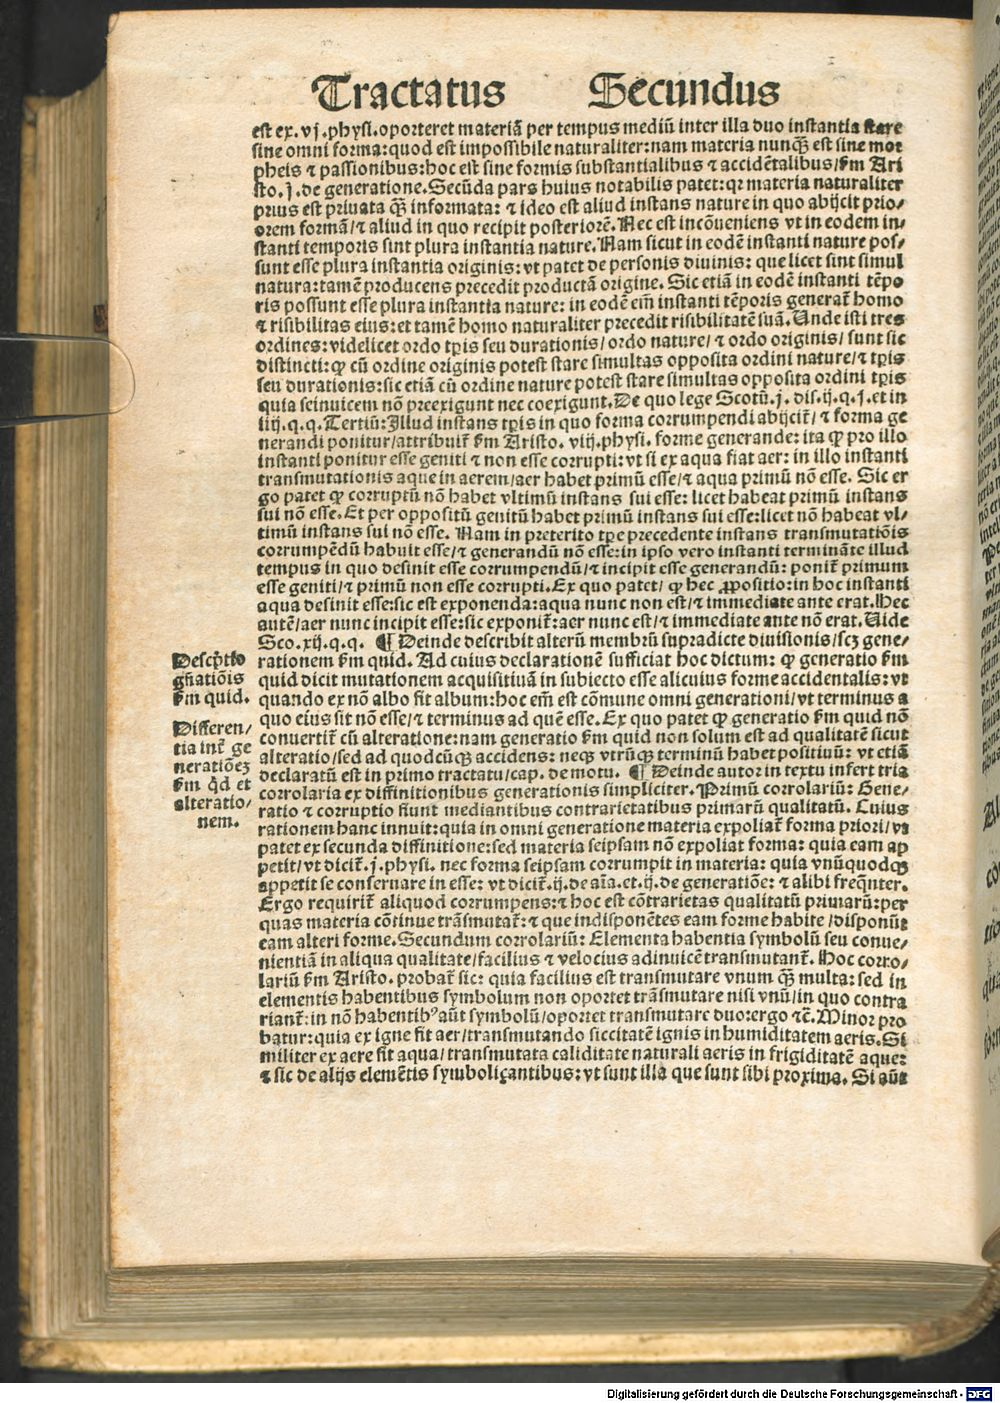 Tractatus Secundus
est ex. vj. physi. oporteret materiã per tempus mediũ inter illa duo instantia stare
sine omni forma: quod est impossibile naturaliter: nam materia nunq̃ est sine mor
pheis ⁊ passionibus: hoc est sine formis substantialibus ⁊ accidẽtalibus/ ẜm Ari
sto. j. de generatione. Secũda pars huius notabilis patet: qꝛ materia naturaliter
prius est priuata q̃ informata: ⁊ ideo est aliud instans nature in quo abijcit prio/
orem formã/ ⁊ aliud in quo recipit posteriorẽ. Nec est incõueniens vt in eodem in/
stanti temporis sint plura instantia nature. Nam sicut in eodẽ instanti nature pos/
sunt esse plura instantia originis: vt patet de personis diuinis: que licet sint simul
natura: tamẽ producens precedit productã origine. Sic etiã in eodẽ instanti tẽpo
ris possunt esse plura instantia nature: in eodẽ em̃ instanti tẽporis generat̃ homo
⁊ risibilitas eius: et tamẽ homo naturaliter precedit risibilitatẽ suã. Unde isti tres
ordines: videlicet ordo tp̃is seu durationis/ ordo nature/ ⁊ ordo originis/ sunt sic
distincti: ꝙ cũ ordine originis potest stare simultas opposita ordini nature/ ⁊ tp̃is
seu durationis: sic etiã cũ ordine nature potest stare simultas opposita ordini tp̃is
quia seinuicem nõ preexigunt nec coexigunt. De quo lege Scotũ. j. dis. ij. q. j. et in
iiij. q. q. Tertiũ: Illud instans tp̃is in quo forma corrumpendi abijcit̃/ ⁊ forma ge
nerandi ponitur/ attribuit̃ ẜm Aristo. viij. physi. forme generande: ita ꝙ pro illo
instanti ponitur esse geniti ⁊ non esse corrupti: vt si ex aqua fiat aer: in illo instanti
transmutationis aque in aerem/ aer habet primũ esse/ ⁊ aqua primũ nõ esse. Sic er
go patet ꝙ corruptũ nõ habet vltimũ instans sui esse: licet habeat primũ instans
sui nõ esse. Et per oppositũ genitũ habet primũ instans sui esse: licet nõ habeat vl/
timũ instans sui nõ esse. Nam in preterito tp̃e precedente instans transmutatiõis
corrumpẽdũ habuit esse/ ⁊ generandũ nõ esse: in ipso vero instanti terminãte illud
tempus in quo desinit esse corrumpendũ/ ⁊ incipit esse generandũ: ponit̃ primum
esse geniti/ ⁊ primũ non esse corrupti. Ex quo patet/ ꝙ hec ꝓpositio: in hoc instanti
aqua desinit esse: sic est exponenda: aqua nunc non est/ ⁊ immediate ante erat. Hec
autẽ/ aer nunc incipit esse: sic exponit̃: aer nunc est/ ⁊ immediate ante nõ erat. Uide
Sco. xij. q. q. ¶ Deinde describit alterũ membrũ supradicte diuisionis/ scꝫ gene/
rationem ẜm quid. Ad cuius declarationẽ sufficiat hoc dictum: ꝙ generatio ẜm
quid dicit mutationem acquisitiuã in subiecto esse alicuius forme accidentalis: vt
quando ex nõ albo fit album: hoc em̃ est cõmune omni generationi/ vt terminus a
quo eius sit nõ esse/ ⁊ terminus ad quẽ esse. Ex quo patet ꝙ generatio ẜm quid nõ
conuertit̃ cũ alteratione: nam generatio ẜm quid non solum est ad qualitatẽ sicut
alteratio/ sed ad quodcũqꝫ accidens: neqꝫ vtrũqꝫ terminũ habet positiuũ: vt etiã
declaratũ est in primo tractatu/ cap. de motu. ¶ Deinde autor in textu infert tria
corrolaria ex diffinitionibus generationis simpliciter. Primũ corrolariũ: Gene/
ratio ⁊ corruptio fiunt mediantibus contrarietatibus primarũ qualitatũ. Cuius
rationem hanc innuit: quia in omni generatione materia expoliat̃ forma priori/ vt
patet ex secunda diffinitione: sed materia seipsam nõ expoliat forma: quia eam ap
petit/ vt dicit̃. j. physi. nec forma seipsam corrumpit in materia: quia vnũquodqꝫ
appetit se conseruare in esse: vt dicit̃. ij. de aĩa. et. ij. de generatiõe: ⁊ alibi freq̃nter.
Ergo requirit̃ aliquod corrumpens: ⁊ hoc est cõtrarietas qualitatũ primarũ: per
quas materia cõtinue trãsmutat̃: ⁊ que indisponẽtes eam forme habite/ disponũt
eam alteri forme. Secundum corrolariũ: Elementa habentia symbolũ seu conue/
nientiã in aliqua qualitate/ facilius ⁊ velocius adinuicẽ transmutant̃. Hoc corro/
lariũ ẜm Aristo. probat̃ sic: quia facilius est transmutare vnum q̃ multa: sed in
elementis habentibus symbolum non oportet trãsmutare nisi vnũ/ in quo contra
riant̃: in nõ habentibꝰ aũt symbolũ/ oportet transmutare duo: ergo ⁊c̃. Minor pro
batur: quia ex igne fit aer/ transmutando siccitatẽ ignis in humiditatem aeris. Si
militer ex aere fit aqua/ transmutata caliditate naturali aeris in frigiditatẽ aque:
⁊ sic de alijs elemẽtis symboliçantibus: vt sunt illa que sunt sibi proxima. Si aũt
Descp̃tio
gñatiõis
ẜm quid.
Differen/
tia int̃ ge
neratiõeꝫ
ẜm qd̃ et
alteratio/
nem.
Digitalisierung gefördert durch die Deutsche Forschungsgemeinschaft - DFG